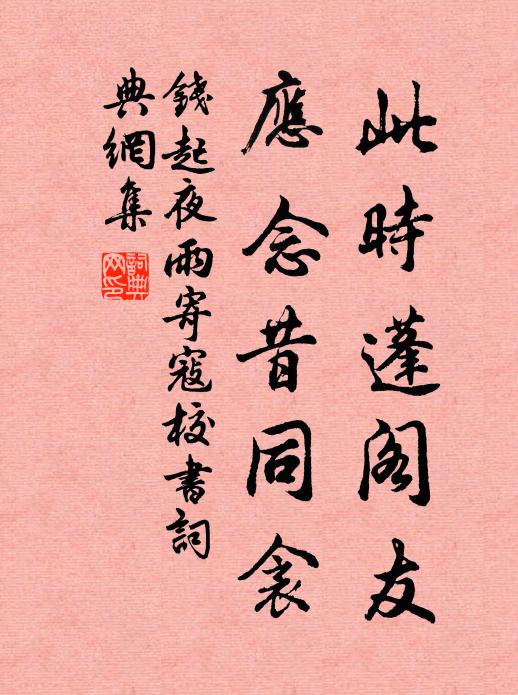 此時蓬閣友
應念昔同衾
錢起夜雨寄寇校書詞
典網集
詞典
网印